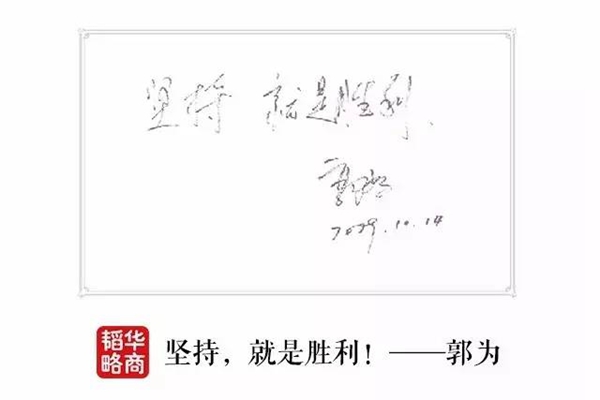 坚持 就是胜利.
郭为
2019.10.14
华商
韬略
坚持，就是胜利！——郭为